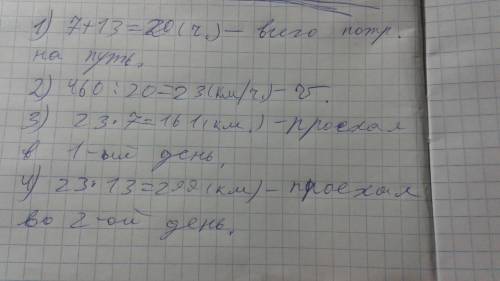 1) 7+13=20(ч.) – всего потр.
на путь.
2) 460:20=23(км/ч.) – V.
3) 23·7=161(км.) – проехал
в 1-ый день.
4) 23·13=299(км) – проехал
во 2-ой день.